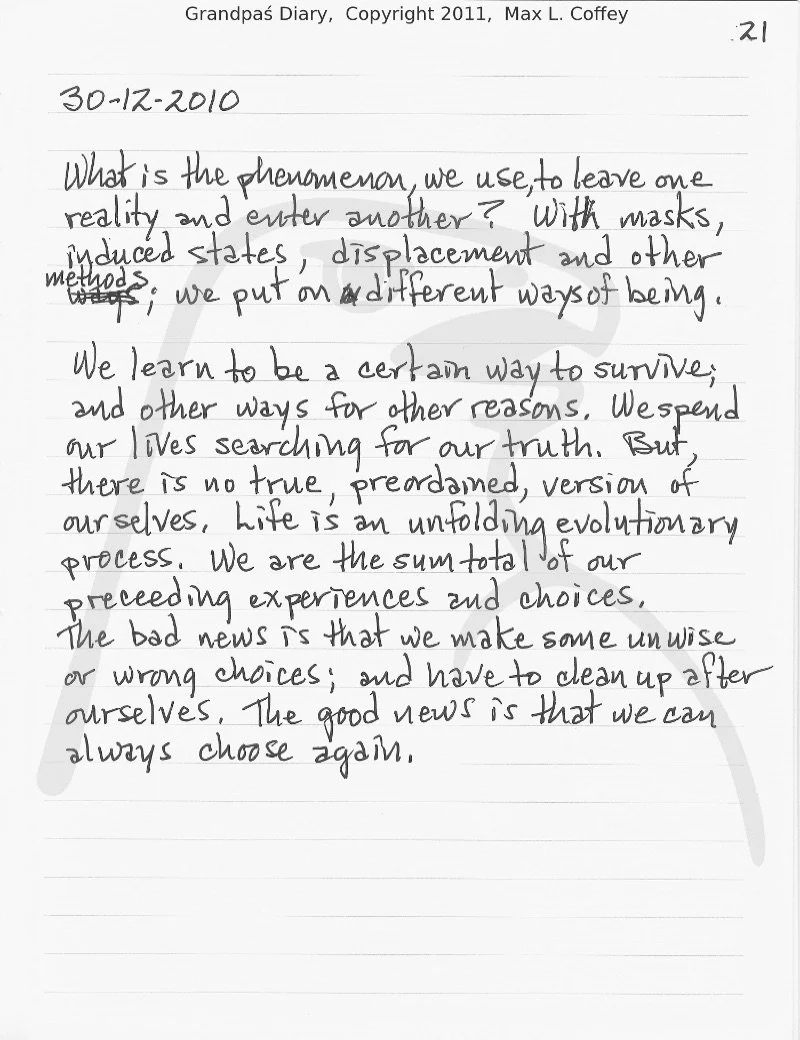 Grandpaś Diary, Copyright 2011, Max L. Coffey
21
30-12-2010
What is the phenomenon, we use, to leave one
reality and enter another? With masks,
induced states, displacement and other
methods
ways; we put on a different ways of being.
We learn to be a certain way to survive;
and other ways for other reasons. We spend
our lives searching for our truth. But,
there is no true, preordained, version of
ourselves. Life is an unfolding evolutionary
process. We are the sum total of our
preceeding experiences and choices.
The bad news is that we make some unwise
or wrong choices; and have to clean up after
ourselves. The good news is that we can
always choose again.